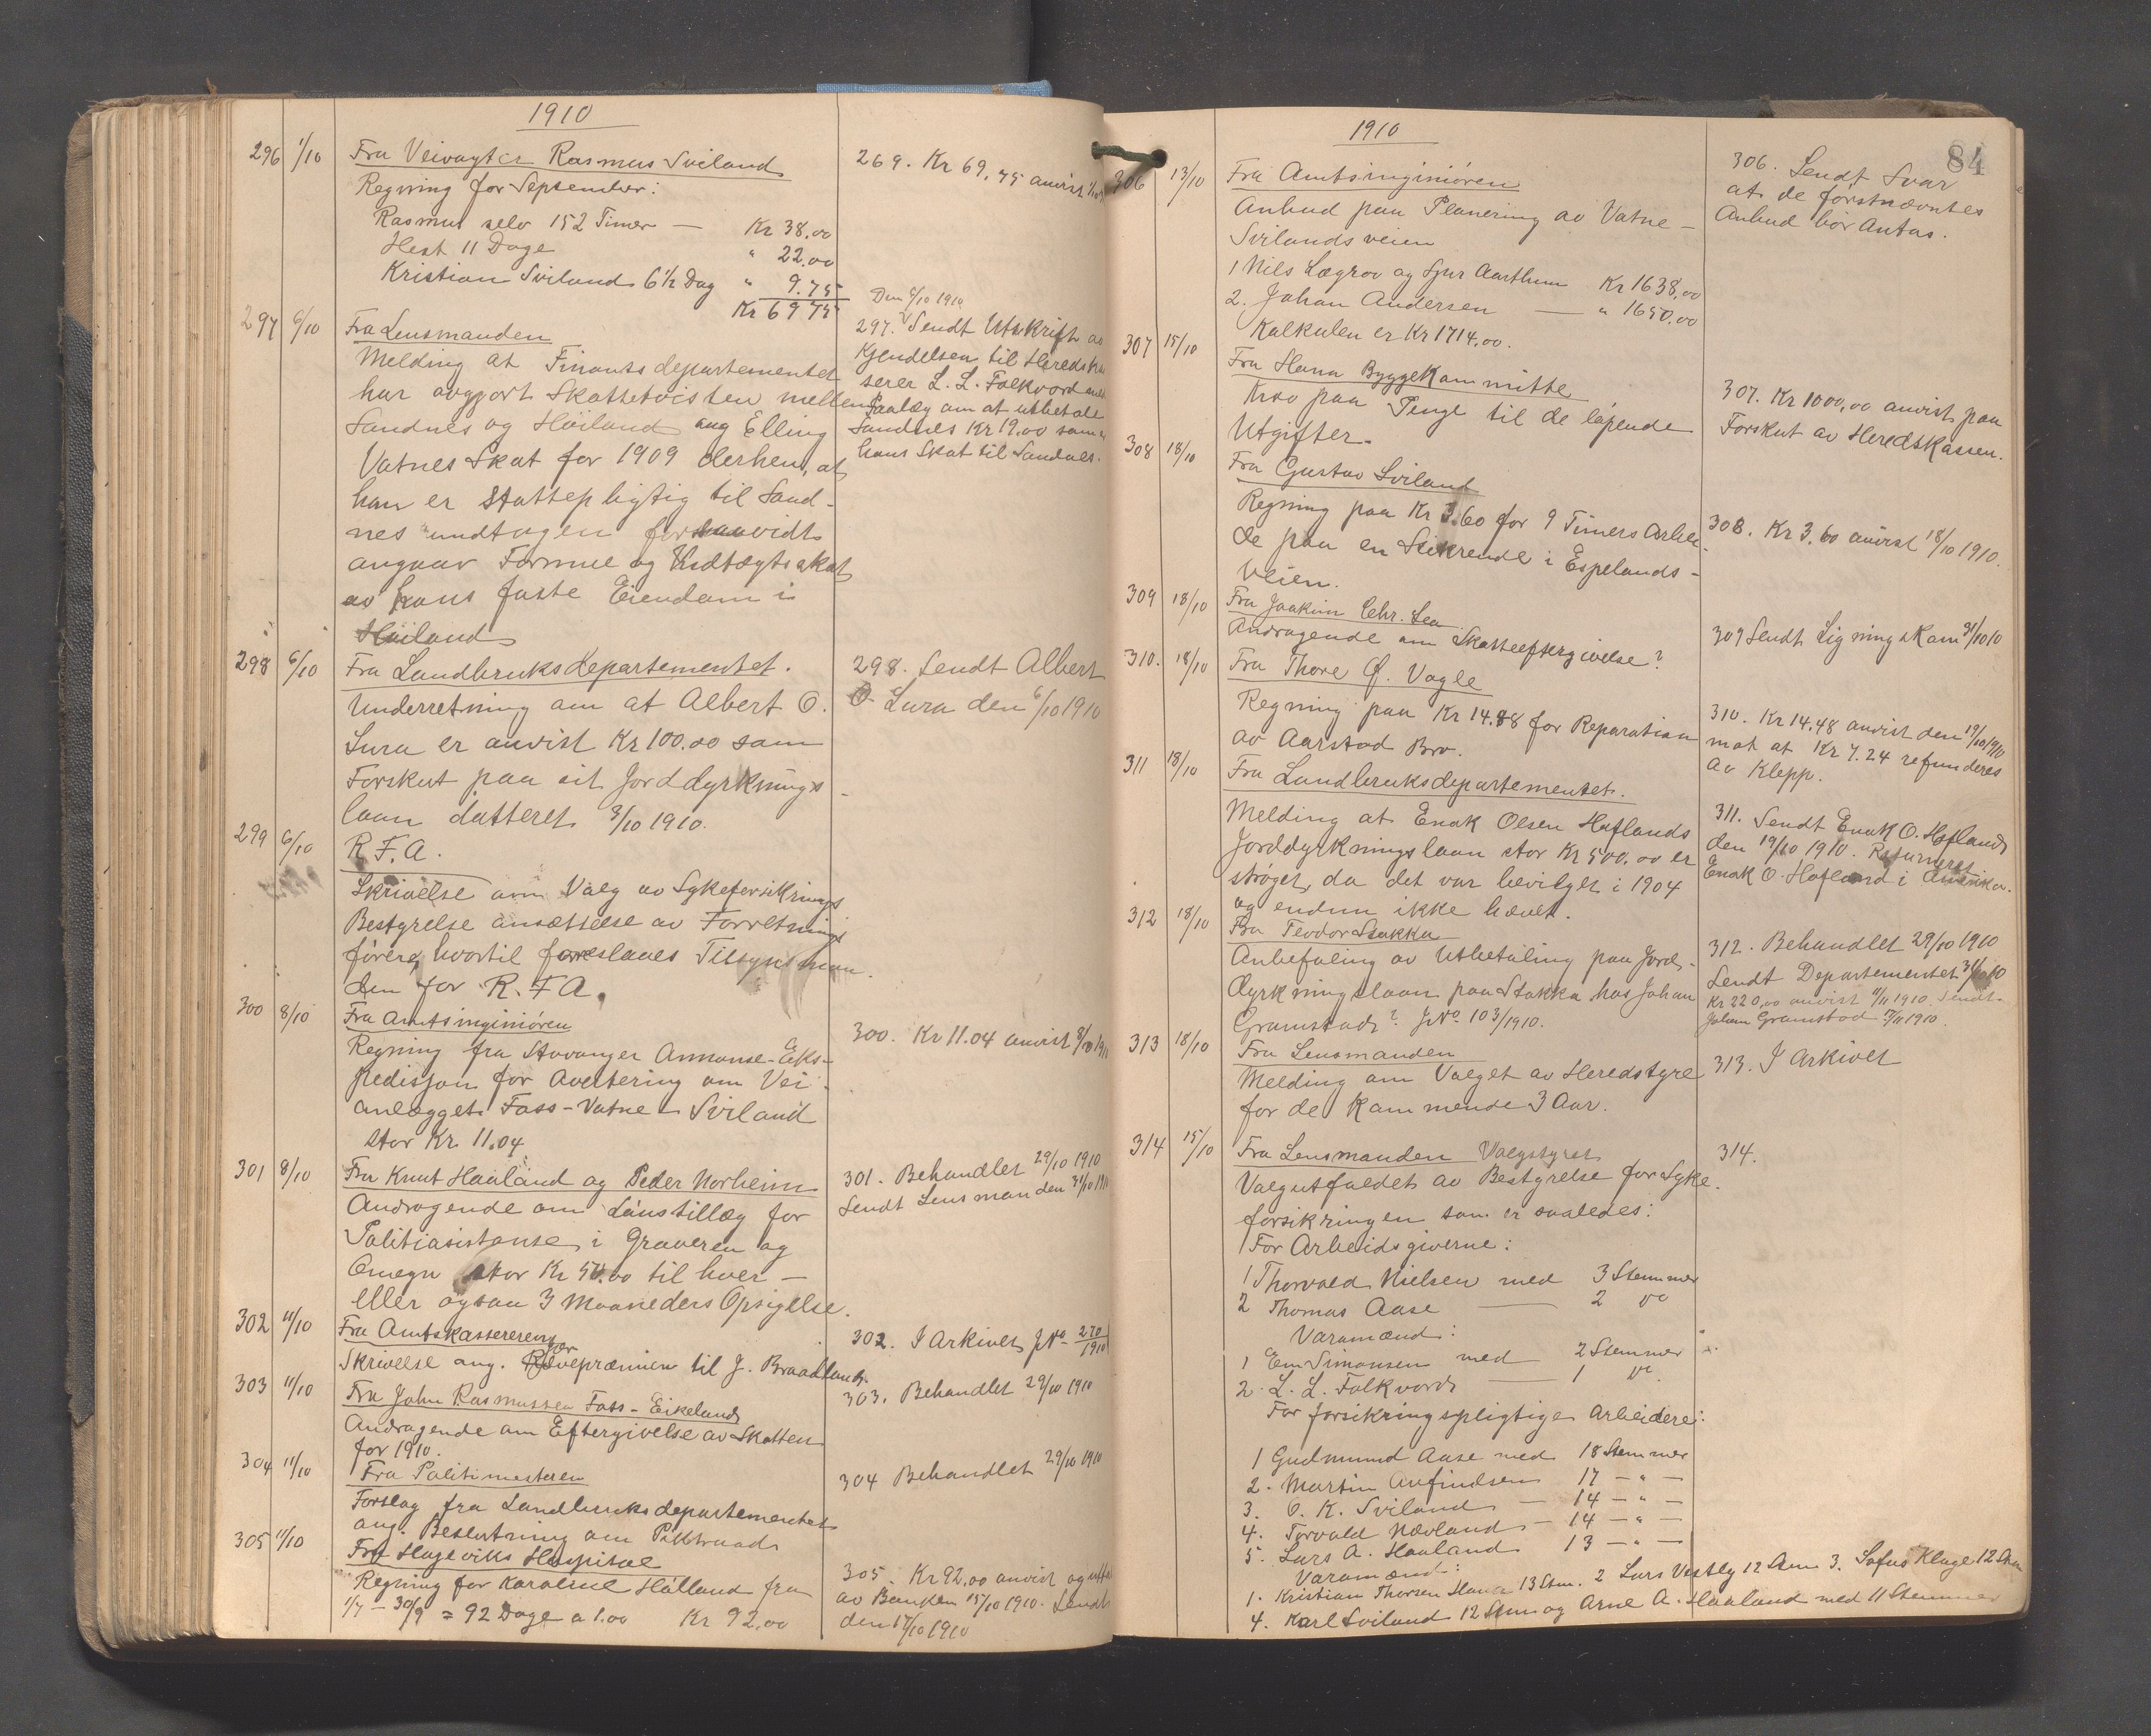 1910
296 1/10 Fra Veivogter Rasmus Sviland
Regning for September:
Rasmus selv 152 Timer — Kr 38.00
Hest 11 Dage " 22.00
Kristian Sviland 6½ Dag " 9.75
Kr 69 75
269. Kr 69.75 anvist
297 6/10 Fra Lensmanden
Melding at Finantsdepartementet
har avgjort Skattetvisten mellem
Sandnes og Höiland ang Elling
Vatnes Skat for 1909 derhen, at
han er skattepligtig til Sand-
nes undtagen forsaavidt
angaar Formue og Indtægtsskat
av hans faste Eiendom i
Höiland
Den 8/10 1910
297. Sendt Utskrift av
Kjendelsen til Heredska
serer L. L. Folkvord med
Paalæg om at utbetale
Sandnes Kr 19.00 som
hans Skat til Sandnes.
298 6/10 Fra Landbruksdepartementet.
Underretning om at Albert O.
Lura er anvist Kr 100.00 som
Forskut paa sit Jorddyrknings-
laan datteret 3/10 1910.
298. Sendt Albert
O Lura den 6/10 1910
299 6/10 R.F.A.
Skrivelse om Valg av Sykeforsikrings
Bestyrelse ansættelse av Forretnings
förere, hvortil foreslaaes Tilsynsman-
den for R.F.A.
300 8/10 Fra Amtsinginiören
Regning fra Stavanger Annonse-Eks-
pedisjon for Avertering om Vei-
anlægget Foss-Vatne-Sviland
stor Kr. 11.04.
300. Kr 11.04 anvist 8/10 1910
301 8/10 Fra Knut Haaland og Peder Norheim
Andragende om Lönstillæg for
Politiasistanse i Graveren og
Omegn stor Kr 54.00 til hver —
eller ogsaa 3 Maaneders Opsigelse.
301. Behandlet 29/10 1910
Sendt Lensmanden 31/10 1910
302 11/10 Fra Amtskassereren
Skrivelse ang. Rævepræmien for til J. Braadland.
302. I Arkivet J№ 270/1910
303 11/10 Fra John Rasmussen Foss-Eikeland
Andragende om Eftergivelse av Skatten
for 1910.
303. Behandlet 29/10 1910
304 11/10 Fra Politimesteren
Forslag fra Landbruksdepartementet
ang. Beslutning om Piktraad
304 Behandlet 29/10 1910
305 11/10 Fra Hageviks Hospital
Regning for Karoline Hålland fra
1/7 – 30/9 = 92 Dage a 1.00 Kr 92.00
305. Kr 92.00 anvist
av Banken 15/10 1910. Sendt
den 17/10 1910
84
1910
306 13/10 Fra Amtsinginiören
Anbud paa Planering av Vatne-
Svilandsveien
1 Nils Lægrov og Sjur Aarthun Kr 1638.00
2. Johan Andersen — " 1650.00
Kalkulen er Kr 1714.00.
306. Sendt Svar
at de förstnævntes
Anbud bör Antas.
307 15/10 Fra Hana Byggekammitte
Krav paa Penge til de löpende
Utgifter.
307. Kr 1000.00 anvist paa
Forskut av Heredskassen.
308 18/10 Fra Gustav Sviland
Regning paa Kr 3.60 for 9 Timers Arbei-
de paa en Stikrende i Espelands-
veien.
308. Kr 3.60 anvist 18/10 1910.
309 18/10 Fra Joakim Chr. Lea
Andragende om Skatteeftergivelse?
309 Sendt Ligningskom 31/10 10
310. 18/10 Fra Thore Ø. Vagle
Regning paa Kr 14.48 for Reparation
av Aarstad Bro.
310. Kr 14.48 anvist den 19/10 1910
mot at Kr 7.24 refunderes
av Klepp.
311 18/10 Fra Landbruksdepartementet.
Melding at Enok Olsen Hoflands
Jorddyrkningslaan stor Kr 500.00 er
ströget, da det var bevilget i 1904
og endnu ikke hævet.
311. Sendt Enok O. Hofland
den 19/10 1910. Returneret
Enok O. Hofland i Amerika.
312 18/10 Fra Teodor Stokka
Anbefaling av Utbetaling paa Jord-
dyrkningslaan paa Stokka hos Johan
Gramstad? J№ 103/1910.
312. Behandlet 29/10 1910
Sendt Departementet 31/10 10
Kr 220,00 anvist 11/11 1910. Sendt
Johan Gramstad 17/11 1910.
313 18/10 Fra Lensmanden
Melding om Valget av Heredstyre
for de Kommende 3 Aar.
313. I Arkivet
314 15/10 Fra Lensmanden Valgstyret
Valgutfaldet av Bestyrelse for Syke-
forsikringen som er saaledes:
For Arbeidsgiverne:
1 Thorvald Nielsen med 3 Stemmer
2 Thomas Aase — 2 do
Varamænd:
1 Em Simonsen med 2 Stemmer
2. L. L. Folkvord — 1 do.
For forsikringspligtige Arbeidere:
1 Gudmund Aase med 18 Stemmer
2. Martin Anfindsen 17 — " —
3. O. K. Sviland — 14 — " —
4. Torvald Nævland — 14 — " —
5. Lars A. Haaland 13 — " —
Varamænd:
1. Kristian Thorsen Hana 13 Stm. 2 Lars Vestly 12 Stm 3. Sofus Kluge 12 Stm
4. Karl Sviland 12 Stm og Arne A. Haaland med 11 Stemmer
314.